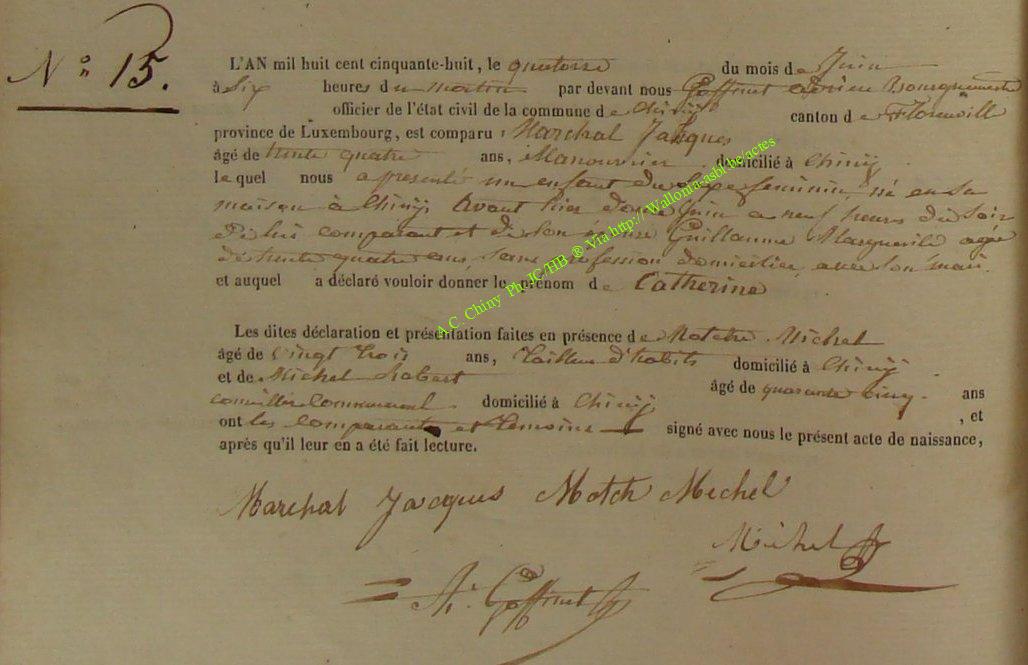 N° 15.
L'AN mil huit cent cinquante-huit, le quatorze du mois de Juin
à Six heures du matin par devant nous Goffinet Bourgmestre
officier de l'état civil de la commune de Chiny canton de Florenville
province de Luxembourg, est comparu Marchal Jacques
âgé de trente quatre ans, Manouvrier domicilié à Chiny
lequel nous a présenté un enfant du Sexe feminin, né en Sa
maison à Chiny, Avant hier douze Juin a neuf heures du Soir
De lui comparant et de Son épouse Guillaume Marguerite agée
de trente quatre ans, Sans profession domiciliée avec Son mari
et auquel a déclaré vouloir donner le prénom de Catherine
Les dites déclaration et présentation faites en présence de Michel
âgé de vingt trois ans, tailleur d'habits domicilié à Chiny
et de Michel âgé de quarante cinq ans
conseiller Communal domicilié à Chiny, et
ont les comparant et temoins signé avec nous le présent acte de naissance,
après qu'il leur en a été fait lecture.
Marchal Jacques Motch Michel
Michel
Goffinet
A C Chiny Ph JC/HB ® Via http://Wallonia-asbl.be/actes